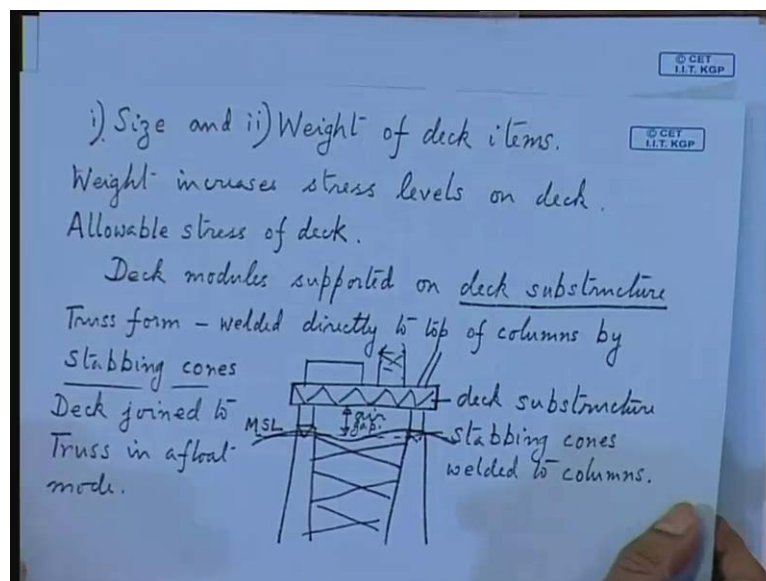 © CET
I.I.T. KGP
© CET
I.I.T. KGP
i) Size and ii) Weight of deck items.
Weight increases stress levels on deck.
Allowable stress of deck.
Deck modules supported on deck substructure
Truss form - welded directly to top of columns by
stabbing cones
Deck joined to
Truss in afloat
mode.
air
gap.
MSL
deck substructure
stabbing cones
welded to columns.